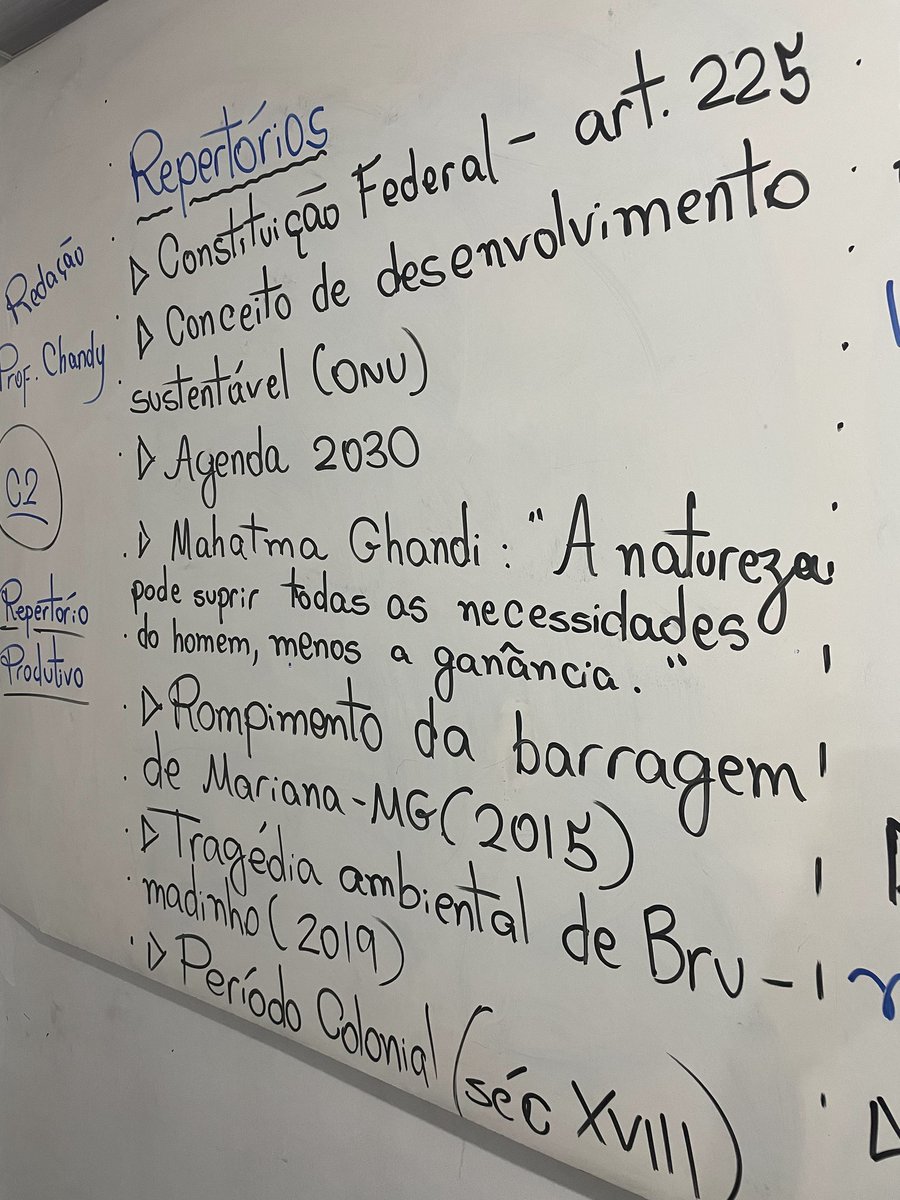 Redação
Prof. Chandy
C2
Repertório
Produtivo
Repertórios
▷ Constituição Federal - art. 225
▷ Conceito de desenvolvimento
sustentável (ONU)
▷ Agenda 2030
▷ Mahatma Ghandi: "A natureza
pode suprir todas as necessidades
do homem, menos a ganância."
▷ Rompimento da barragem
de Mariana-MG (2015)
▷ Tragédia ambiental de Bru-
madinho (2019)
▷ Período Colonial (séc XVIII)